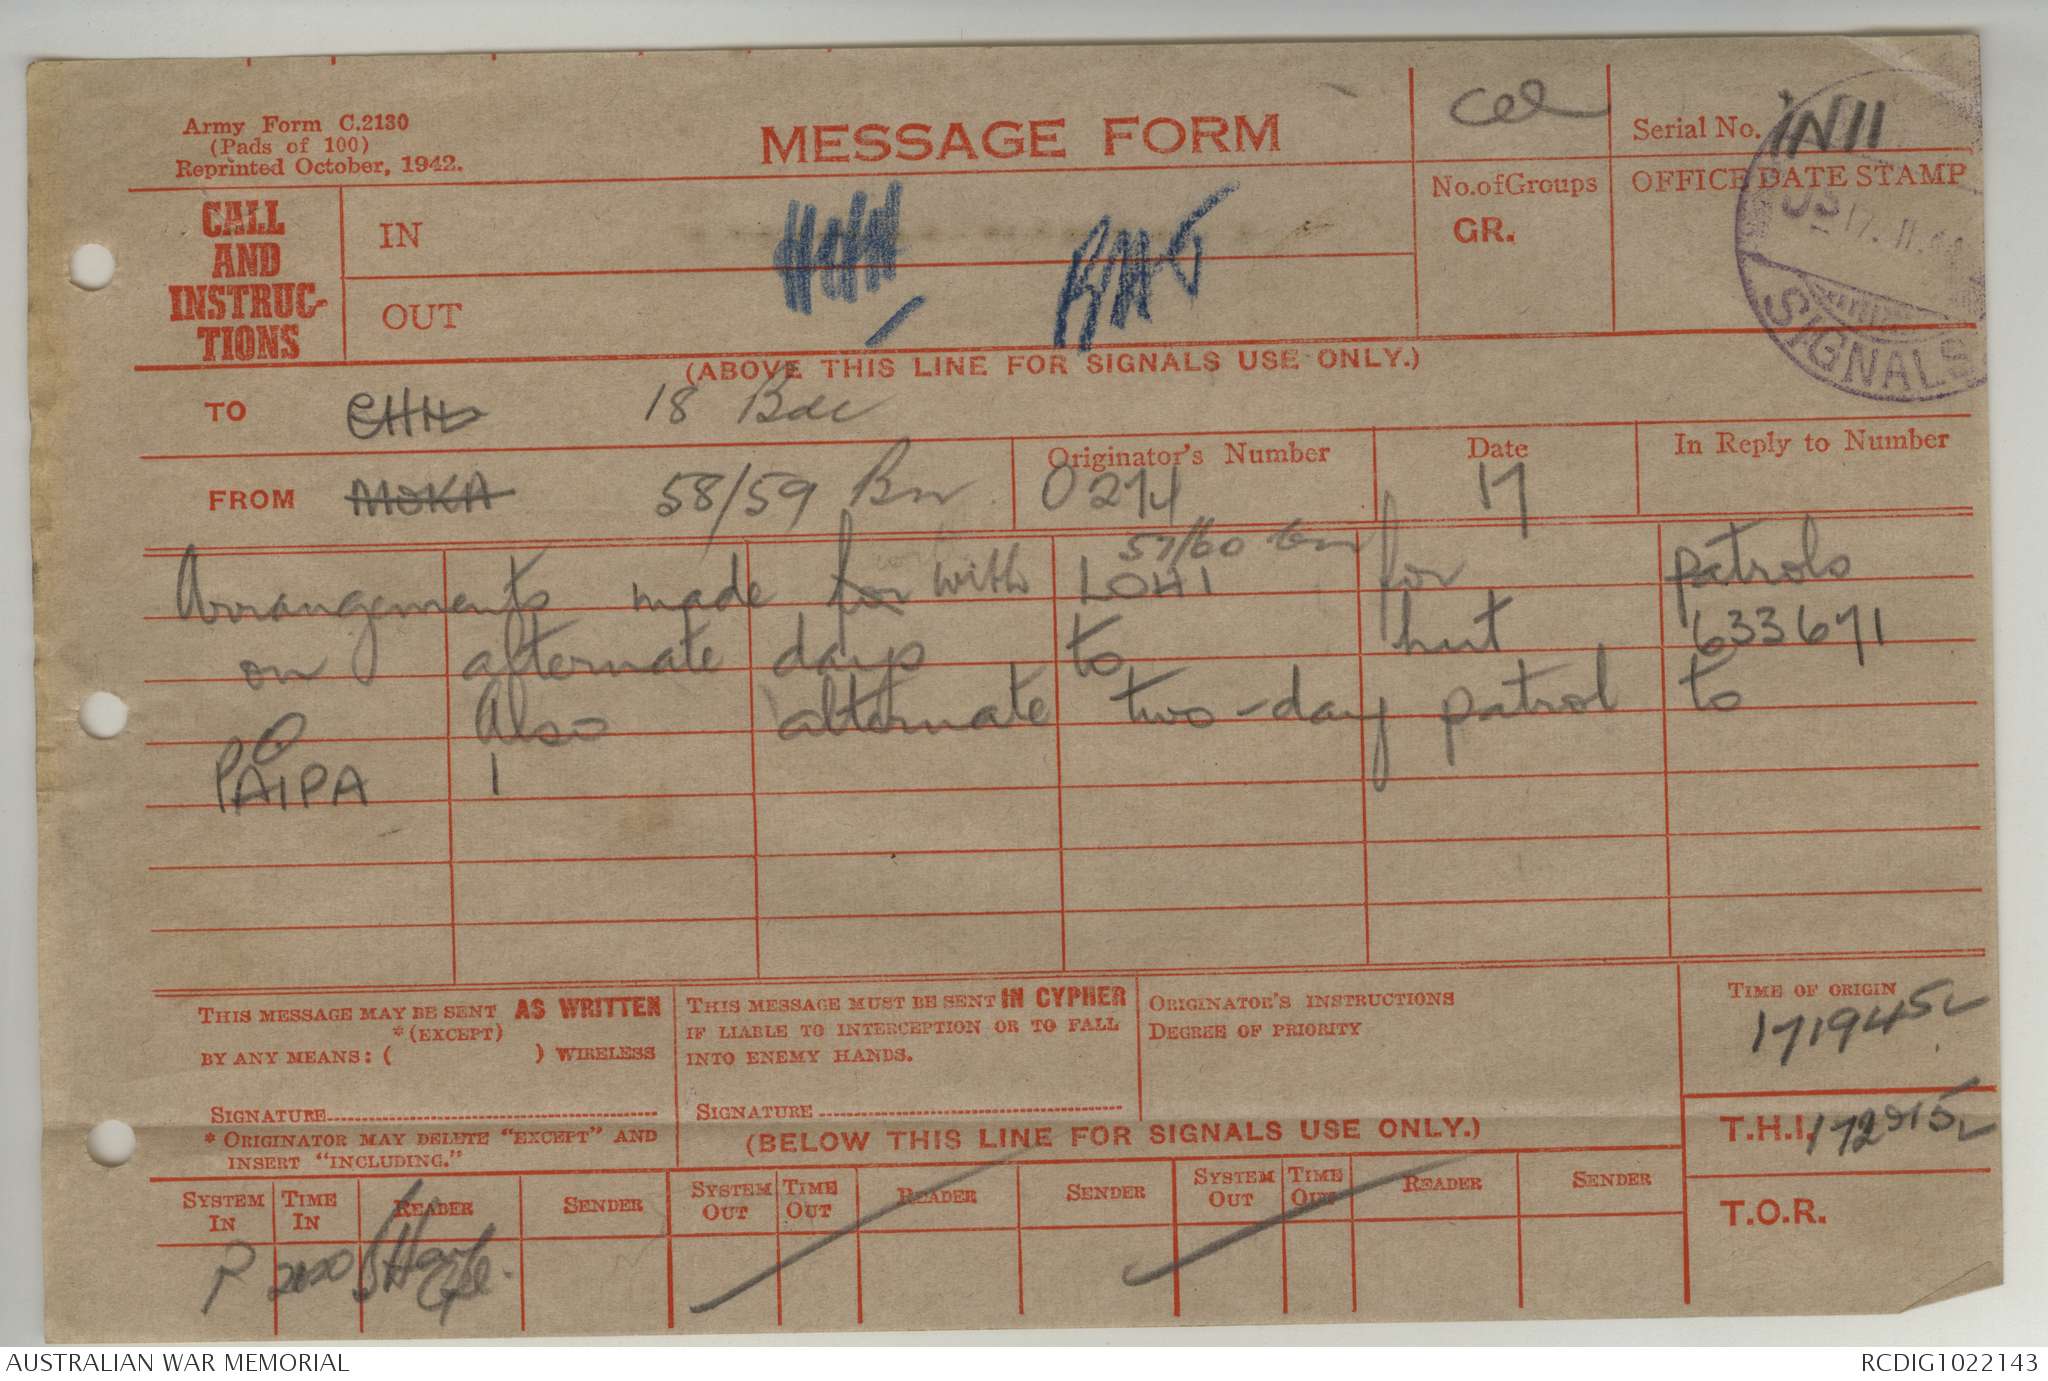 Army Form C.2130
(Pads of 100)
Reprinted October, 1942.
MESSAGE FORM
Serial No. IN 11
CALL AND INSTRUC-TIONS
IN
OUT
No. of Groups
GR.
OFFICE DATE STAMP
17. 11. 44
SIGNALS
(ABOVE THIS LINE FOR SIGNALS USE ONLY.)
TO 18 Bde
FROM MOKA 58/59 Bn
Originator's Number 0274
Date 17
In Reply to Number
57/60 Bn
Arrangements made for with LOHI for patrols
on alternate days to hut 633671
Also alternate two-day patrol to
PAIPA 1
THIS MESSAGE MAY BE SENT AS WRITTEN
*(EXCEPT)
BY ANY MEANS: ( ) WIRELESS
SIGNATURE
* ORIGINATOR MAY DELETE "EXCEPT" AND
INSERT "INCLUDING."
THIS MESSAGE MUST BE SENT IN CYPHER
IF LIABLE TO INTERCEPTION OR TO FALL
INTO ENEMY HANDS.
SIGNATURE
ORIGINATOR'S INSTRUCTIONS
DEGREE OF PRIORITY
TIME OF ORIGIN
171945L
(BELOW THIS LINE FOR SIGNALS USE ONLY.)
T.H.I. 172015L
T.O.R.
SYSTEM IN TIME IN READER SENDER SYSTEM OUT TIME OUT READER SENDER SYSTEM OUT TIME OUT READER SENDER
P 2020
AUSTRALIAN WAR MEMORIAL
RCDIG1022143